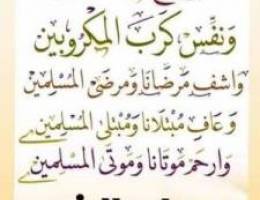 وَنَفِّسْ كَرَبَ المَكْرُوبِين
وَاشْفِ مَرْضَانَا وَمَرْضَىٰ المُسْلِمِين
وَعَافِ مُبْتَلَانَا وَمُبْتَلَى المُسْلِمِين
وَارْحَمْ مَوْتَانَا وَمَوْتَى المُسْلِمِين